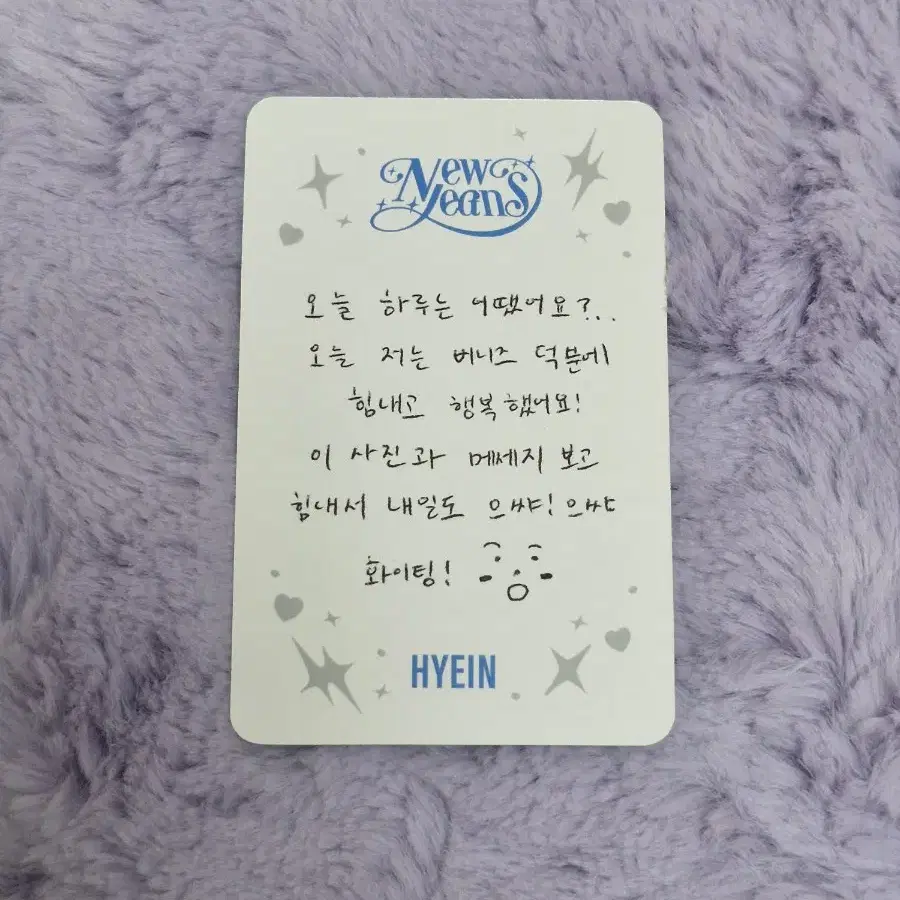 New
Jeans
오늘 하루는 어땠어요?..
오늘 저는 버니즈 덕분에
힘내고 행복했어요!
이 사진과 메세지 보고
힘내서 내일도 으쌰! 으쌰
화이팅!
HYEIN